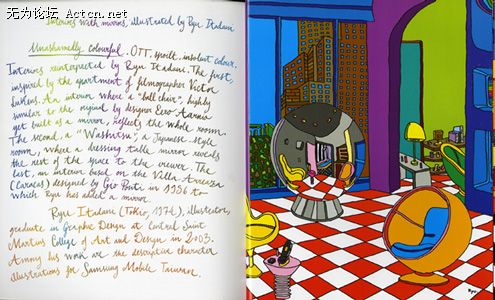 无为论坛 Actcn.net
Interiors with mirrors, illustrated by Ryu Itadani
Unashamedly colourful. OTT, spoilt, insolent colour.
Interiors reinterpreted by Ryu Itadani. The first,
inspired by the apartment of filmographer Victor
Lukens. An interior where a "ball chair", highly
similar to the original by designer Eero Aarnio
get built as a mirror, reflects the whole room.
The second, a "Washitsu", a Japanese-style
room, where a dressing table mirror reveals
the rest of the space to the viewer. The
last, an interior based on the Villa Arreaza
(Caracas) designed by Gio Ponti in 1956 to
which Ryu has added a mirror.
Ryu Itadani (Tokio, 1974), illustrator,
graduate in Graphic Design at Central Saint
Martins College of Art and Design in 2003.
Among his work are the descriptive character
illustrations for Samsung Mobile Taiwan.
Ryu